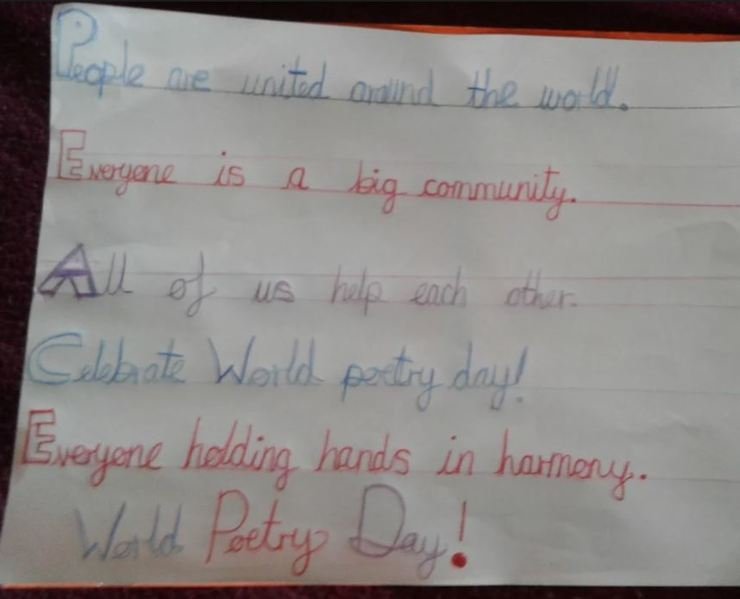 People are united around the world.
Everyone is a big community.
All of us help each other.
Celebrate World poetry day!
Everyone holding hands in harmony.
World Poetry Day!